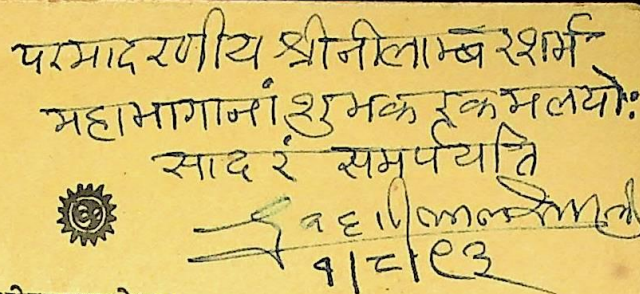 परमादरणीय श्रीनीलाम्बरशर्म
महाभागानां शुभकरकमलयोः
सादरं समर्पयति
१/८/९३